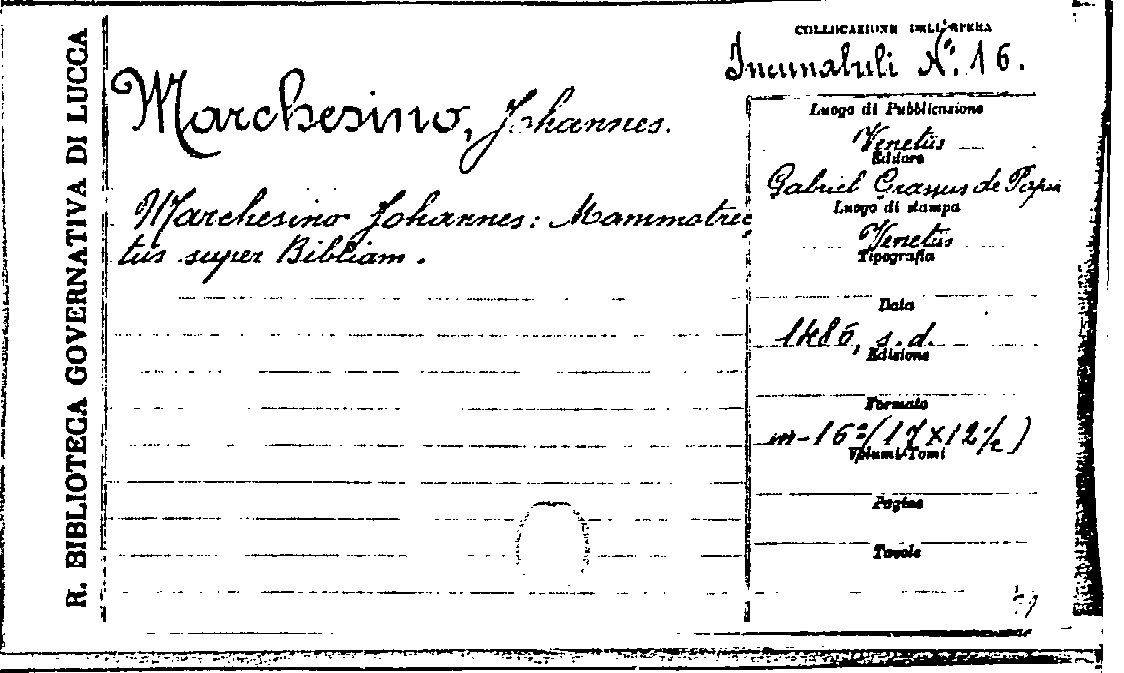 R. BIBLIOTECA GOVERNATIVA DI LUCCA
COLLOCAZIONE DELL'OPERA
Incunabuli N.º 16.
Marchesino, Johannes.
Marchesino Johannes: Mammotrec
tus super Bibliam.
Luogo di Pubblicazione
Venetiis
Editore
Gabriel Grassus de Papia
Luogo di stampa
Venetiis
Tipografia
Data
1485, s.d.
Edizione
Formato
in-16º (17 x 12½)
Volumi/Tomi
Pagine
Tavole